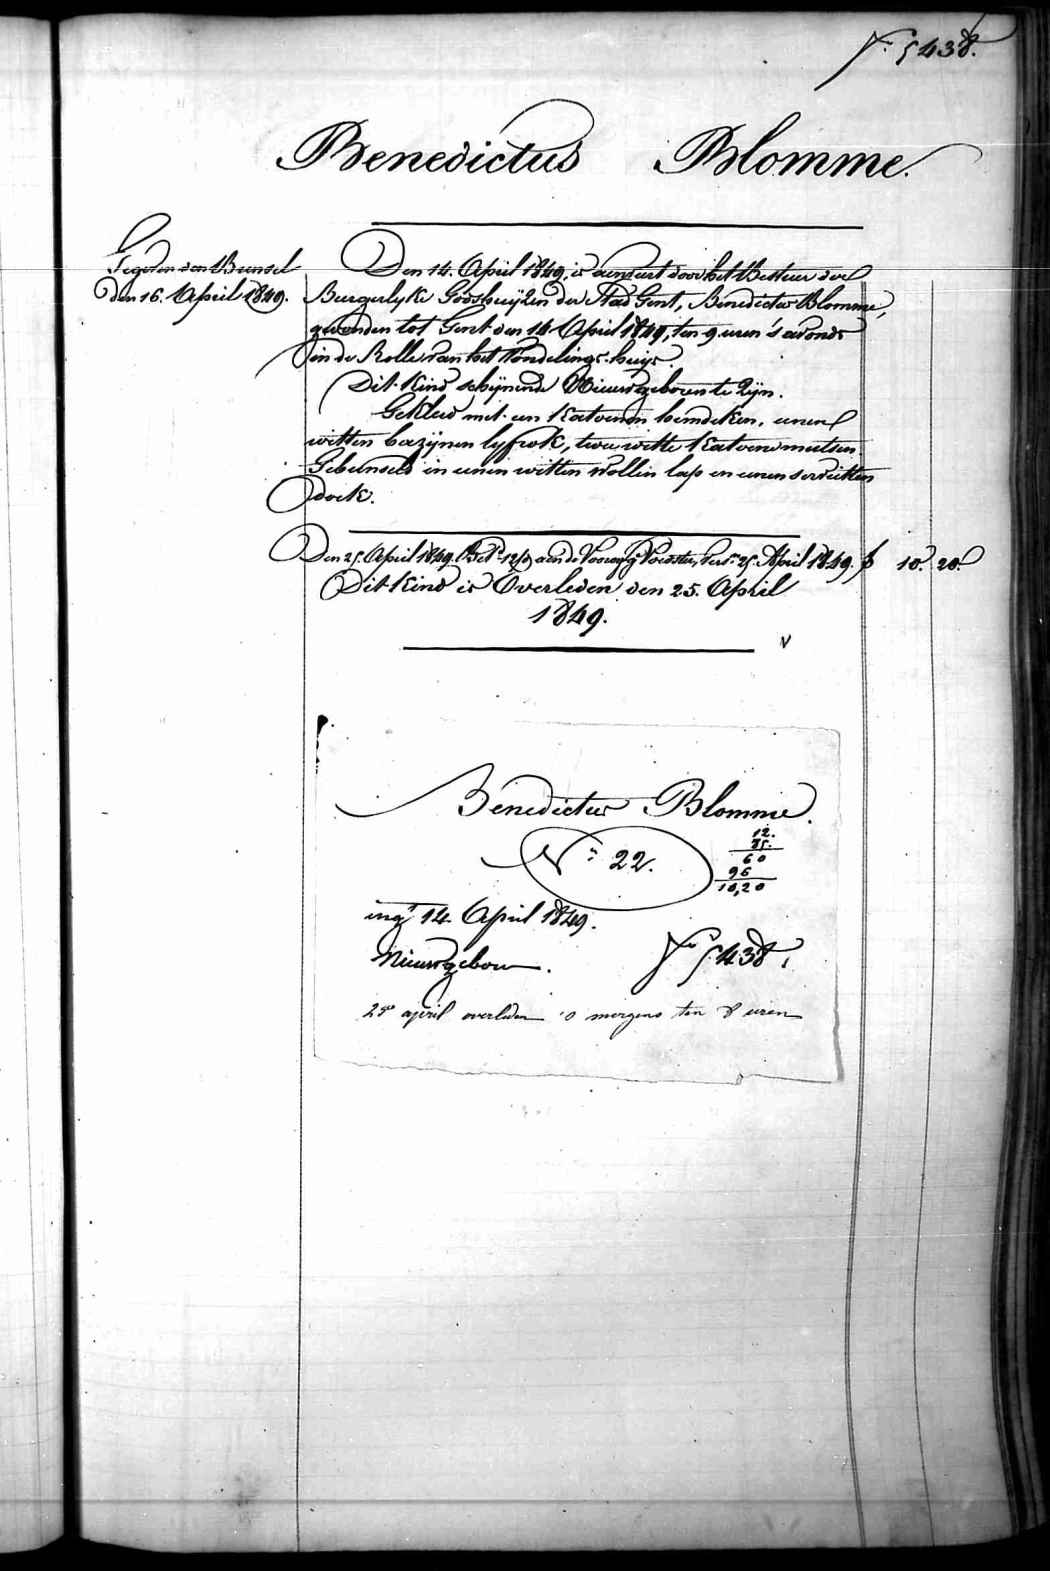 F.° 5438.
Benedictus Blomme.
Gegeven den Bunsel
den 16. April 1849.
Den 14. April 1849, is aenveert door het Bestuer der
Burgerlyke Godshuyzen der Stad Gent, Benedictus Blomme,
gevonden tot Gent den 14. April 1849, ten 9 uren 's avonds
in de Rolle van het Vondelings-huys.
Dit Kind schynende Nieuwgeboren te Zyn.
Gekleed met een Katoenen hemdeken, eenen
witten bazynen lyfrok, twee witte Katoene mutsen
Gebunseld in eenen witten wollen lap en eenen servietten
doek.
Den 25. April 1849. Bet. 12/d aen de Voorzorg Voedster, sert. 25. April 1849. f 10. 20.
Dit Kind is Overleden den 25. April
1849.
V
Benedictus Blomme.
N.° 22.
12.
85.
60
96
10,20
ing. 14. April 1849.
Nieuwgebore.
F.° 5438.
25e april overleden 's morgens ten 8 uren